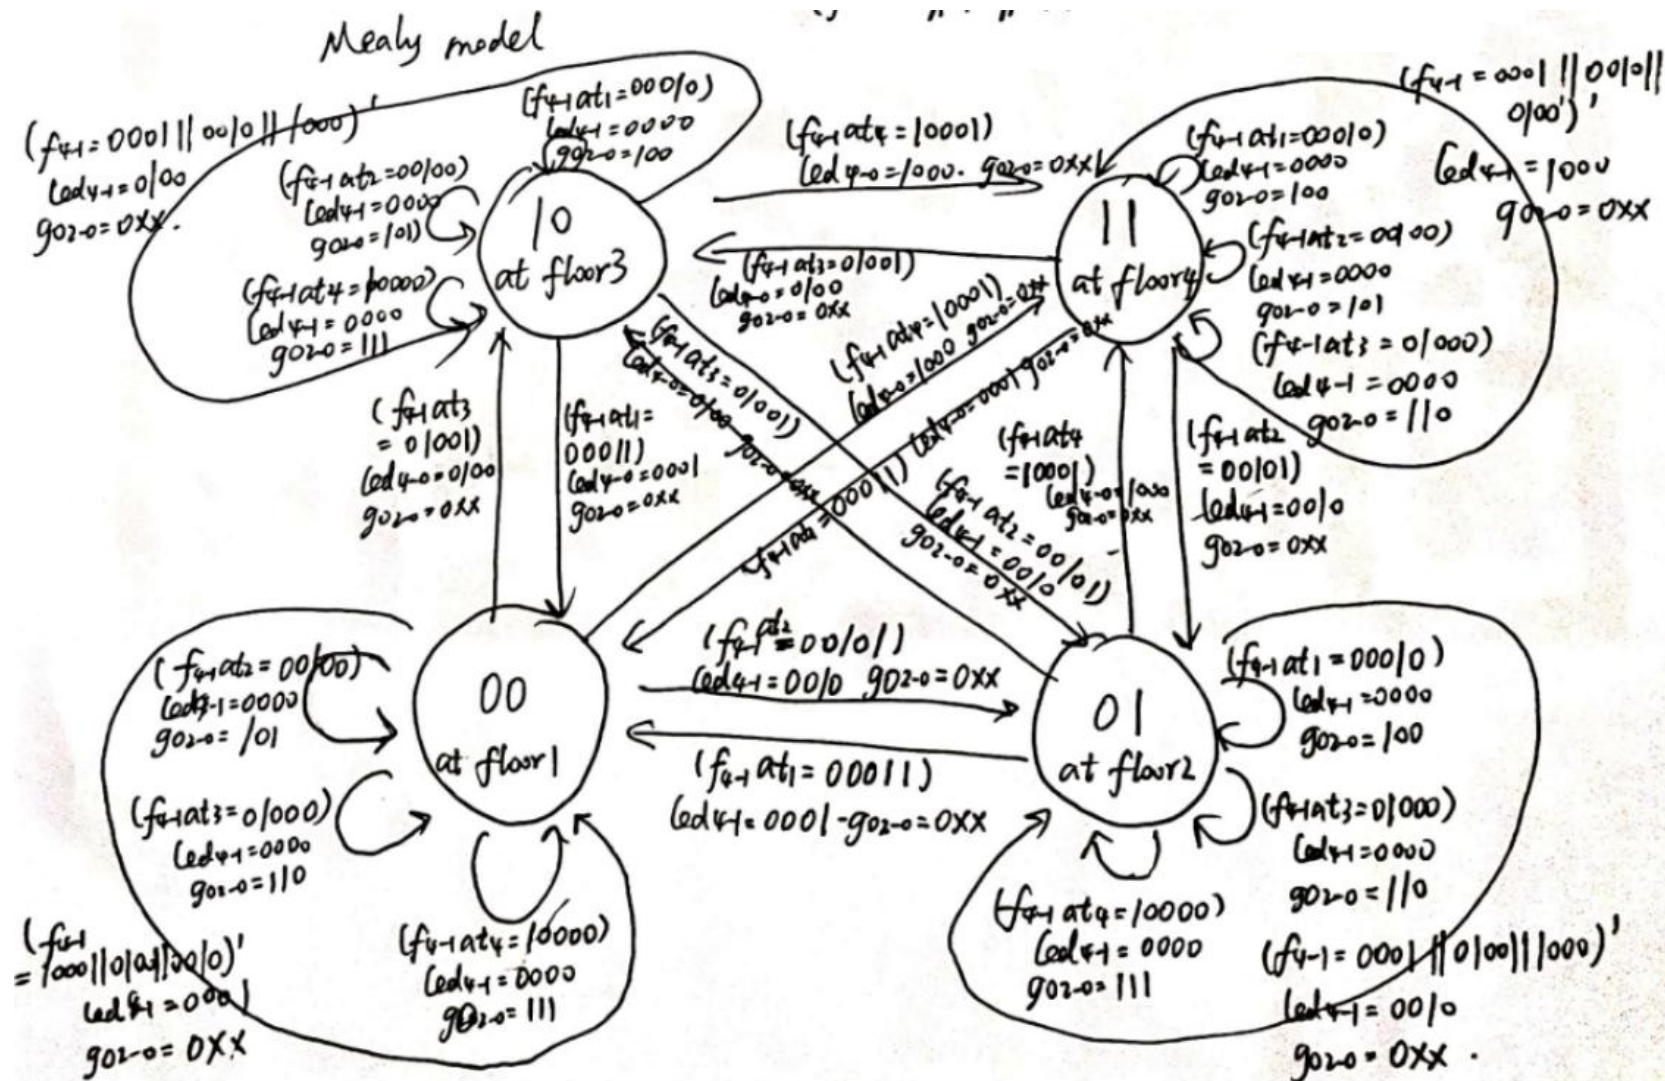 Mealy model
(f4-1 = 0001 || 0010 || 1000)'
led4-1 = 0100
go2-0 = 0XX.
(f4-1at1=00010)
led4-1=0000
go2-0=100
(f4-1at2=00100)
led4-1=0000
go2-0=101)
(f4-1at4=10000)
led4-1=0000
go2-0=111
10
at floor3
(f4-1at4=10001)
led4-0=1000. go2-0=0XX
(f4-1at3=01001)
led4-0=0100
go2-0=0XX
(f4-1 = 0001 || 0010 ||
0100')'
led4-1 = 1000
go2-0 = 0XX
(f4-1at1=00010)
led4-1=0000
go2-0=100
11
at floor4
(f4-1at2=00100)
led4-1=0000
go2-0=101
(f4-1at3=01000)
led4-1=0000
go2-0=110
(f4-1at3
=01001)
led4-0=0100
go2-0=0XX
(f4-1at1=
00011)
led4-0=0001
go2-0=0XX
(f4-1at3=01001)
led4-0=0100 go2-0=0XX
(f4-1at4=10001)
led4-0=1000 go2-0=0XX
00011) led4-0=0001 go2-0=0XX
(f4-1at2=00101)
led4-1=0010
go2-0=0XX
(f4-1at4
=10001)
led4-0=1000
go2-0=0XX
(f4-1at2
=00101)
led4-1=0010
go2-0=0XX
(f4-1at2=00100)
led4-1=0000
go2-0=101
00
at floor1
(f4-1at2=00101)
led4-1=0010 go2-0=0XX
(f4-1at1=00011)
led4-1=0001-go2-0=0XX
01
at floor2
(f4-1at1=00010)
led4-1=0000
go2-0=100
(f4-1at3=01000)
led4-1=0000
go2-0=110
(f4-1at3=01000)
led4-1=0000
go2-0=110
(f4-1at4=10000)
led4-1=0000
go2-0=111
(f4-1at4=10000)
led4-1=0000
go2-0=111
(f4-1
=1000||0100||0010)'
led4-1=0001
go2-0=0XX
(f4-1=0001||0100||1000)'
led4-1=0010
go2-0=0XX.